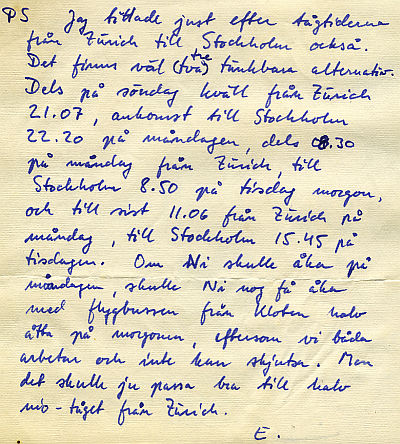 PS Jag tittade just efter tågtiderna
från Zürich till Stockholm också.
Det finns väl (två) tre tänkbara alternativ.
Dels på söndag kväll från Zürich
21.07, ankomst till Stockholm
22.20 på måndagen, dels 8.30
på måndag från Zürich, till
Stockholm 8.50 på tisdag morgon,
och till sist 11.06 från Zürich på
måndag, till Stockholm 15.45 på
tisdagen. Om Ni skulle åka på
måndagen, skulle Ni nog få åka
med flygbussen från Kloten halv
åtta på morgonen, eftersom vi båda
arbetar och inte kan skjutsa. Men
det skulle ju passa bra till halv
nio-tåget från Zürich.
E.